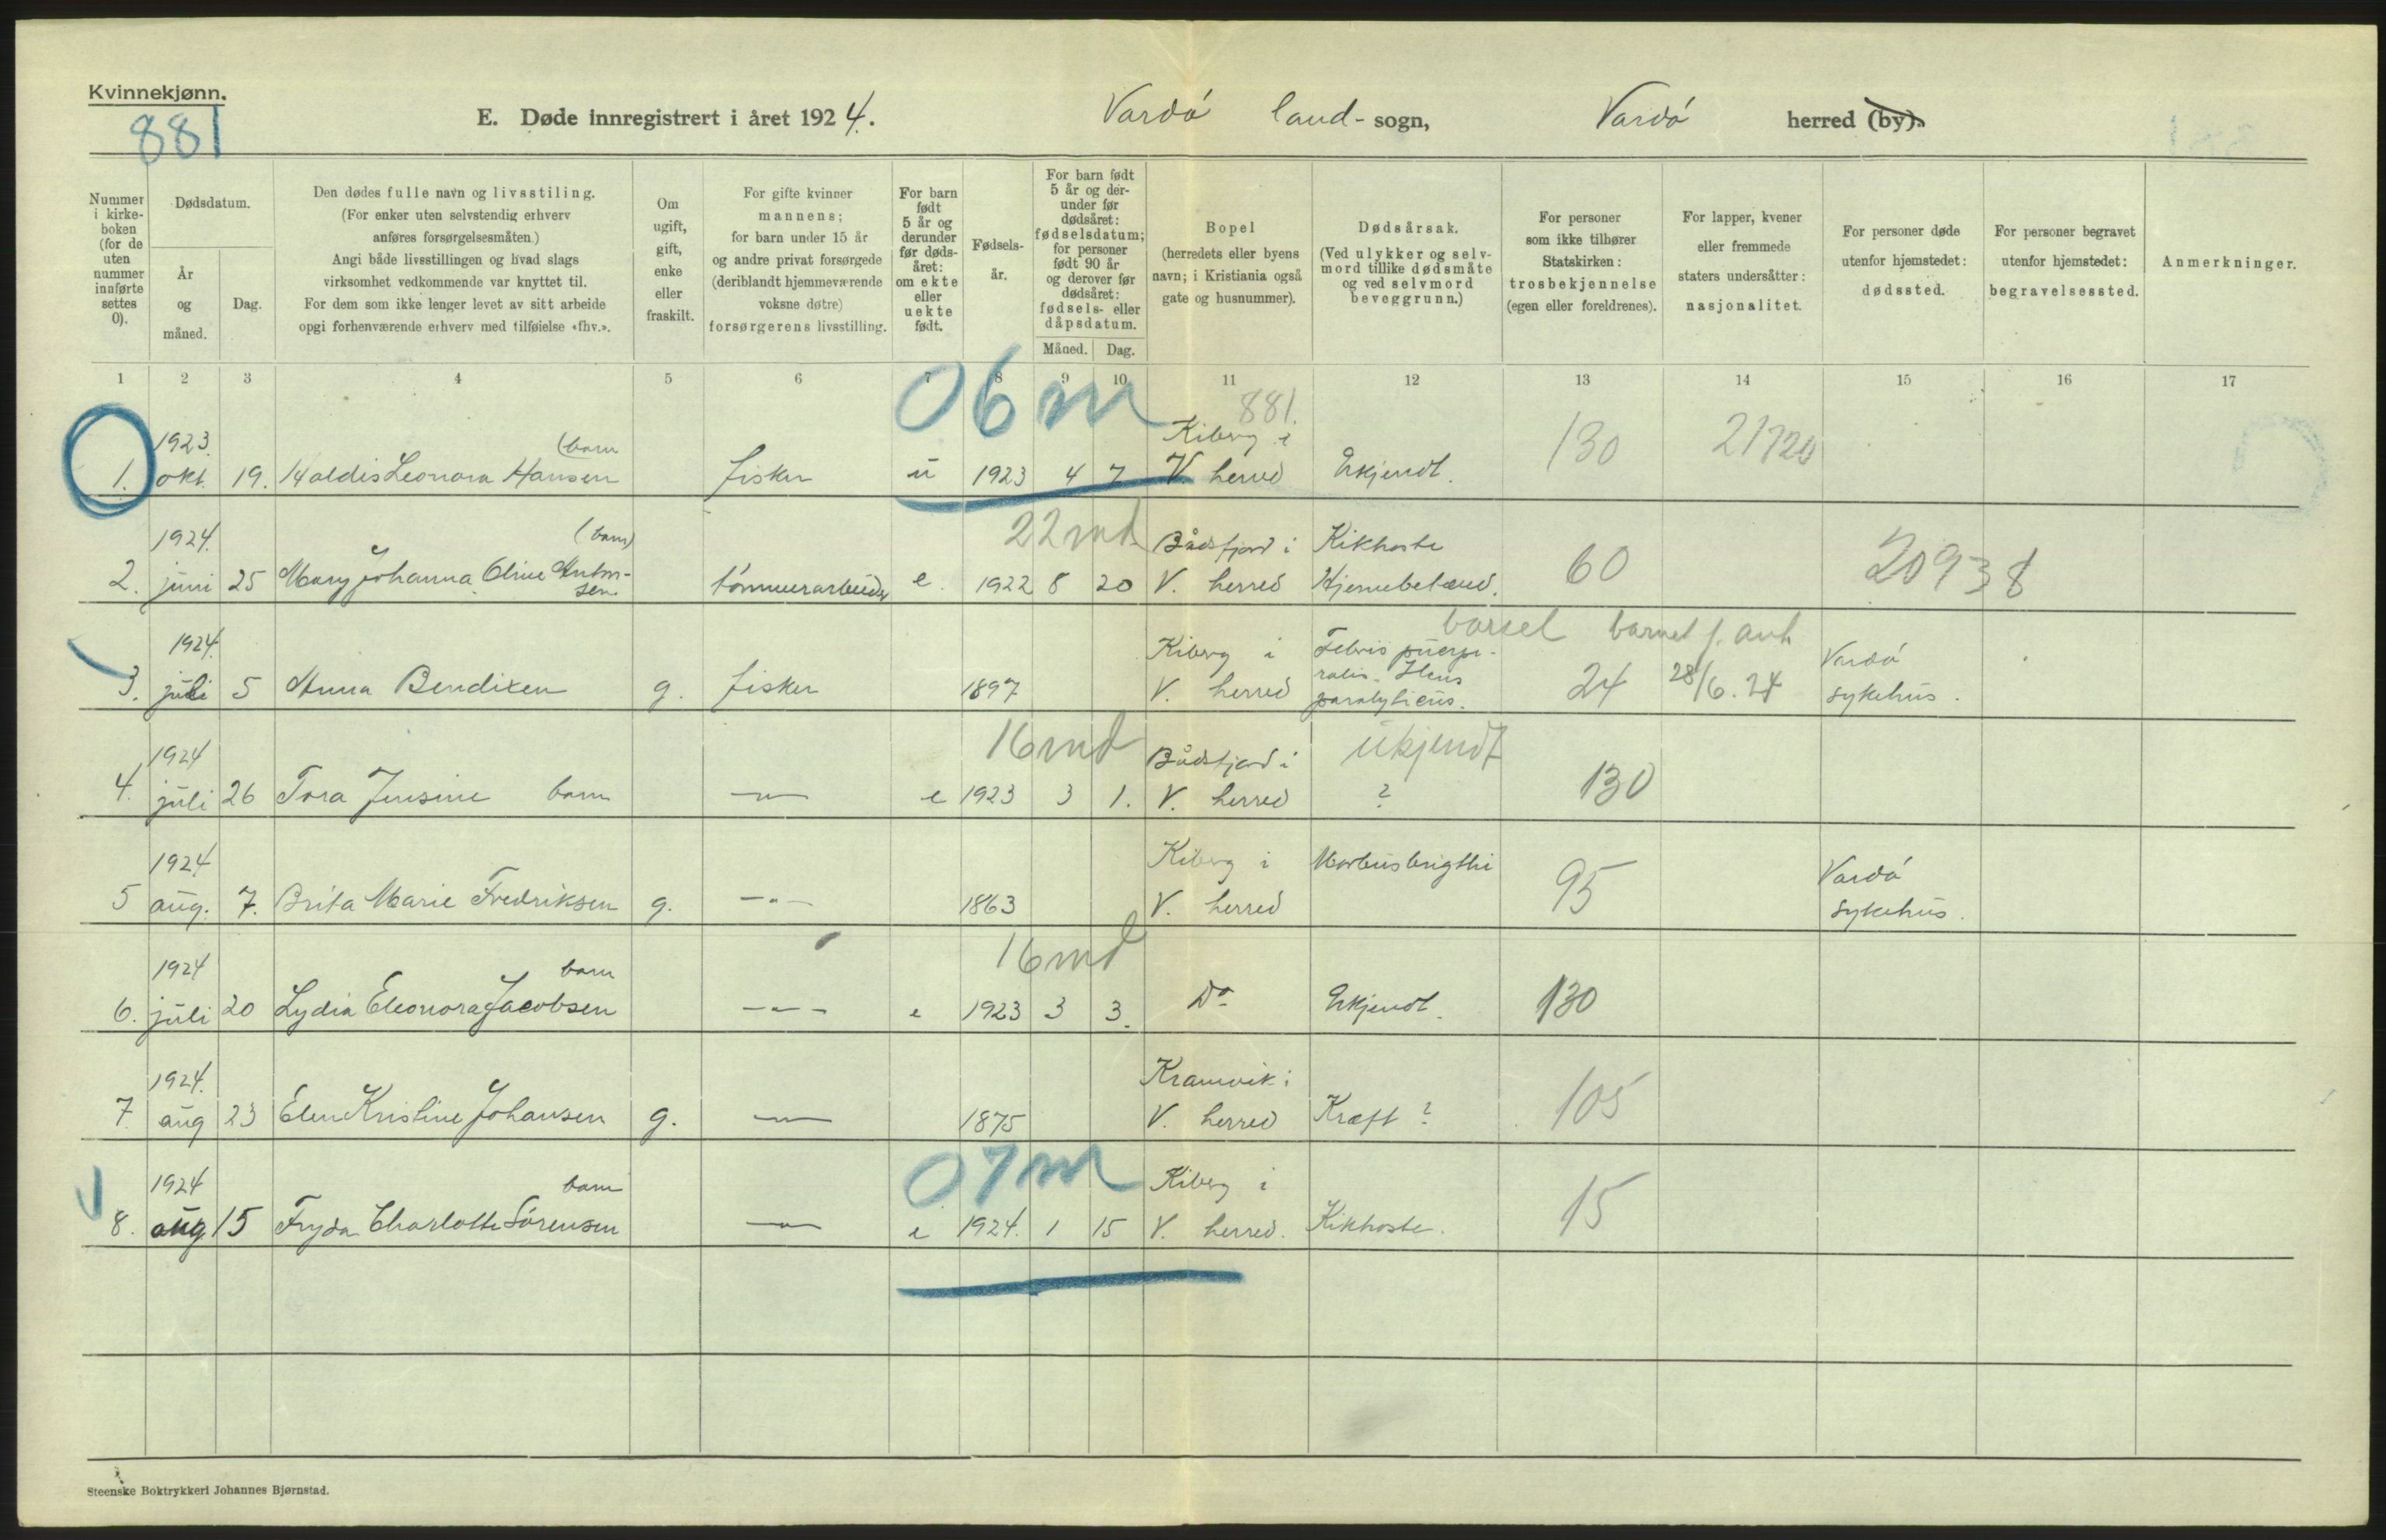 Kvinnekjønn.
881
E. Døde innregistrert i året 1924. Vardø land-sogn, Vardø herred (by).
Nummer i kirkeboken (for de uten nummer innførte settes 0).
Dødsdatum.
År og måned.
Dag.
Den dødes fulle navn og livsstiling.
(For enker uten selvstendig erhverv
anføres forsørgelsesmåten.)
Angi både livsstillingen og hvad slags
virksomhet vedkommende var knyttet til.
For dem som ikke lenger levet av sitt arbeide
opgi forhenværende erhverv med tilføielse «fhv.».
Om ugift, gift, enke eller fraskilt.
For gifte kvinner
mannens;
for barn under 15 år
og andre privat forsørgede
(deriblandt hjemmeværende
voksne døtre)
forsørgerens livsstilling.
For barn født 5 år og derunder før dødsåret: om ekte eller uekte født.
Fødselsår.
For barn født 5 år og derunder før dødsåret: fødselsdatum; for personer født 90 år og derover før dødsåret: fødsels- eller dåpsdatum.
Måned. Dag.
Bopel
(herredets eller byens
navn; i Kristiania også
gate og husnummer).
Dødsårsak.
(Ved ulykker og selvmord tillike dødsmåte
og ved selvmord
beveggrunn.)
For personer
som ikke tilhører
Statskirken:
trosbekjennelse
(egen eller foreldrenes).
For lapper, kvener
eller fremmede
staters undersåtter:
nasjonalitet.
For personer døde
utenfor hjemstedet:
dødssted.
For personer begravet
utenfor hjemstedet:
begravelsessted.
Anmerkninger.
1 2 3 4 5 6 7 8 9 10 11 12 13 14 15 16 17
06 m 881.
1923. (barn Kiberg i 130 21720
1. okt. 19. Haldis Leonora Hansen fisker u 1923 4 7 V. herred Ukjendt.
1924. (barn) 22 md. Bådsfjord i Kikhoste
2. juni 25 Mary Johanna Oline Antonsen tømmerarbeider e. 1922 8 20 V. herred Hjernebetænd. 60 20938
barsel barnet f. anh
1924. Kiberg i Febris puerpe- Vardø
3. juli 5 Anna Bendixen g. fisker 1897 V. herred ralis. Ileus paralyticus. 24 28/6. 24 sykehus.
1924 16 md Bådsfjord i ukjendt
4. juli 26 Tora Jensine barn —"— e 1923 3 1. V. herred ? 130
1924 Kiberg i Morbus brigthi Vardø
5 aug. 7. Brita Marie Fredriksen g. —"— 1863 V. herred 95 sykehus.
1924 barn 16 md
6. juli 20 Lydia Eleonora Jacobsen —"— e 1923 3 3. Do Ukjendt. 130
1924. Kramvik i
7. aug 23 Elen Kristine Johansen g. —"— 1875 V. herred Kræft ? 105
1924 barn 07 m Kiberg i
8. aug 15 Fryda Charlotte Sørensen —"— e 1924. 1 15 V. herred. Kikhoste. 15
Steenske Boktrykkeri Johannes Bjørnstad.